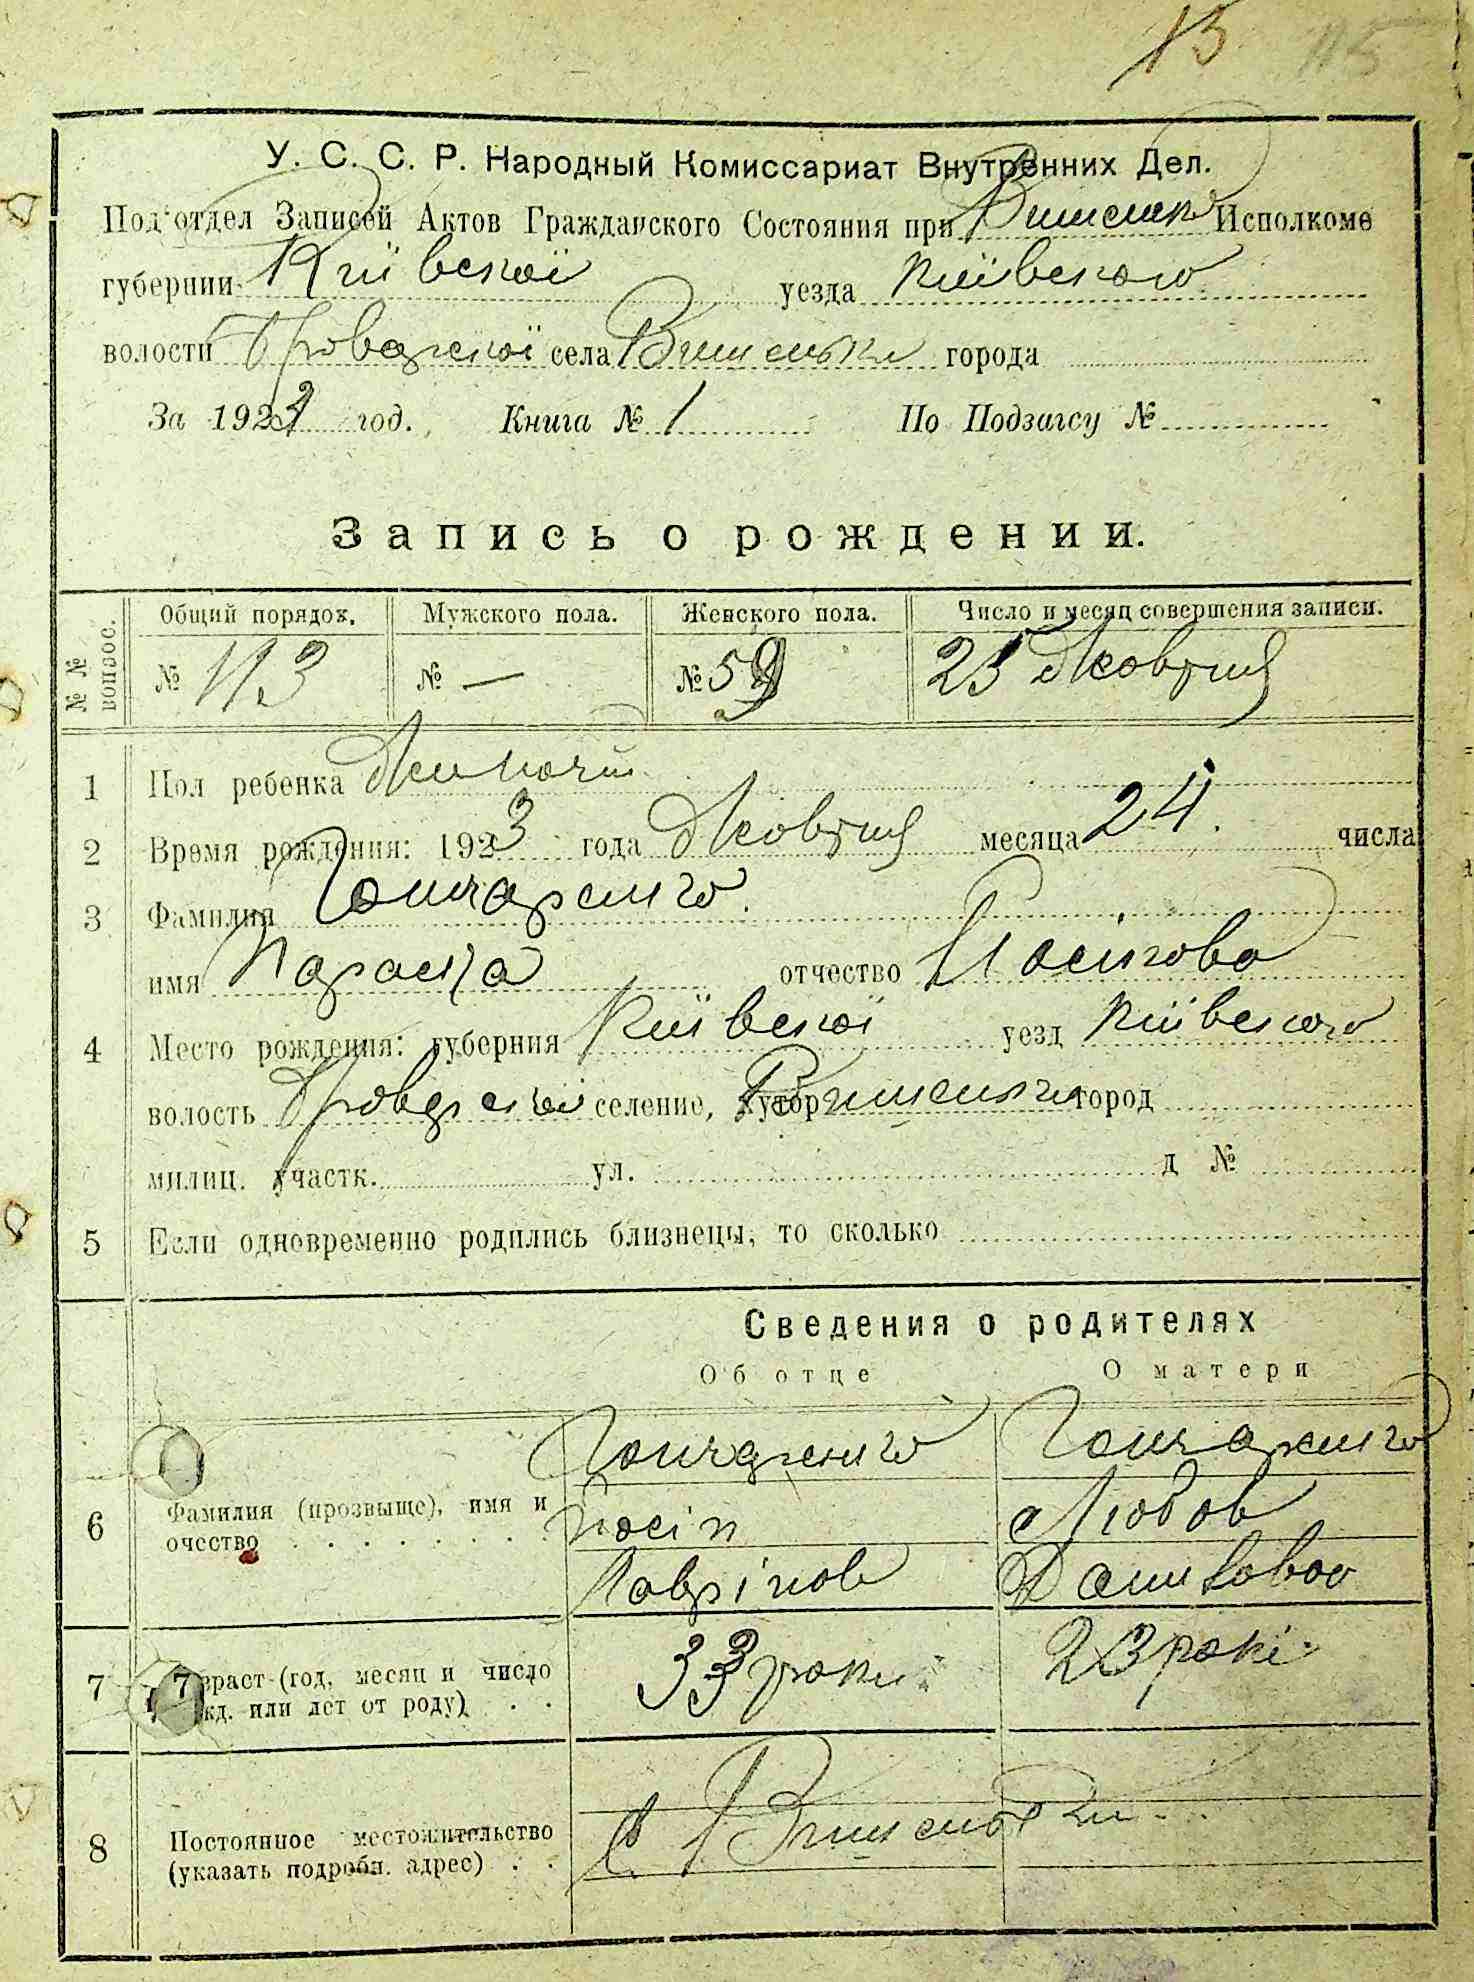 13 115
У. С. С. Р. Народный Комиссариат Внутренних Дел.
Под'отдел Записей Актов Гражданского Состояния при Вишеньк Исполкоме
губернии Київської уезда Київського
волости Броварської села Вишеньки города
За 1923 год. Книга № 1 По Подзагсу №
Запись о рождении.
№ № вопрос. Общий порядок. Мужского пола. Женского пола. Число и месяц совершения записи.
№ 113 № — № 59 25 Жовтня
1 Пол ребенка Жиночий
2 Время рождения: 1923 года Жовтня месяца 24. числа
3 Фамилия Гончаренко
имя Параска отчество Йосипова
4 Место рождения: губерния Київської уезд Київського
волость Броварської селение, хутор Вишеньки город
милиц. участк. ул. д №
5 Если одновременно родились близнецы, то сколько
Сведения о родителях
Об отце О матери
Гончаренко Гончаренко
6 Фамилия (прозвыще), имя и Йосіп Любов
очество Лаврінов Данилова
7 Возраст (год, месяц и число 33 роки 23 рокі
рожд. или лет от роду)
8 Постоянное местожительство С. Вишеньки
(указать подробн. адрес)